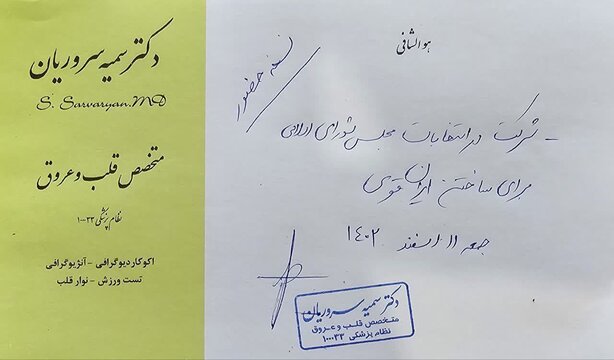 دکتر سمیه سروریان
S. Sarvaryan.MD
متخصص قلب و عروق
نظام پزشکی ۱۰۰۳۳
اکوکاردیوگرافی - آنژیوگرافی
تست ورزش - نوار قلب
هو الشافی
نسخه حضور
- شرکت در انتخابات مجلس شورای اسلامی
برای ساختن ایران قوی
جمعه ۱۱ اسفند ۱۴۰۲
دکتر سمیه سروریان
متخصص قلب و عروق
نظام پزشکی ۱۰۰۳۳